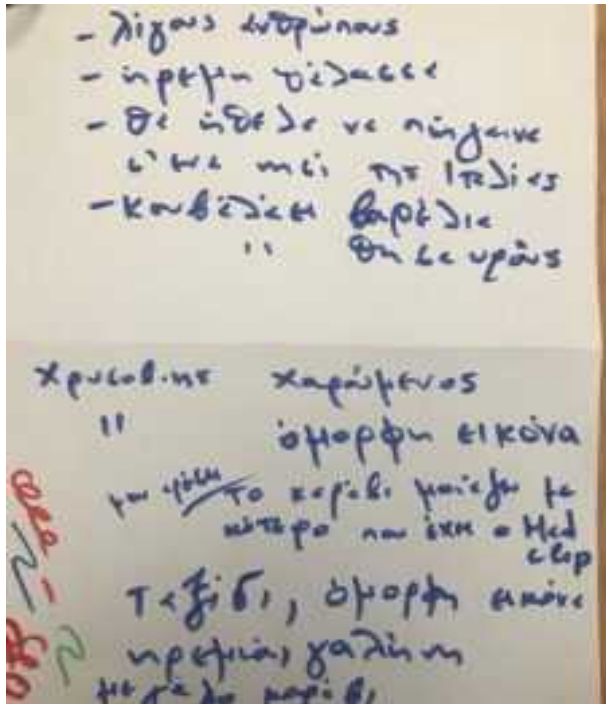 - λίγους ανθρώπους
- ήρεμη θάλασσα
- Θα ήθελα να πήγαινα
σ' ένα νησί της Ιταλίας
- Κουβαλάει βαρέλια
" θησαυρούς
χαρούμενος
" όμορφη εικόνα
το καράβι μοιάζει με
κότερο που έχει ο
Ταξίδι, όμορφη εικόνα
ηρεμία, γαλήνη
μεγάλο καράβι